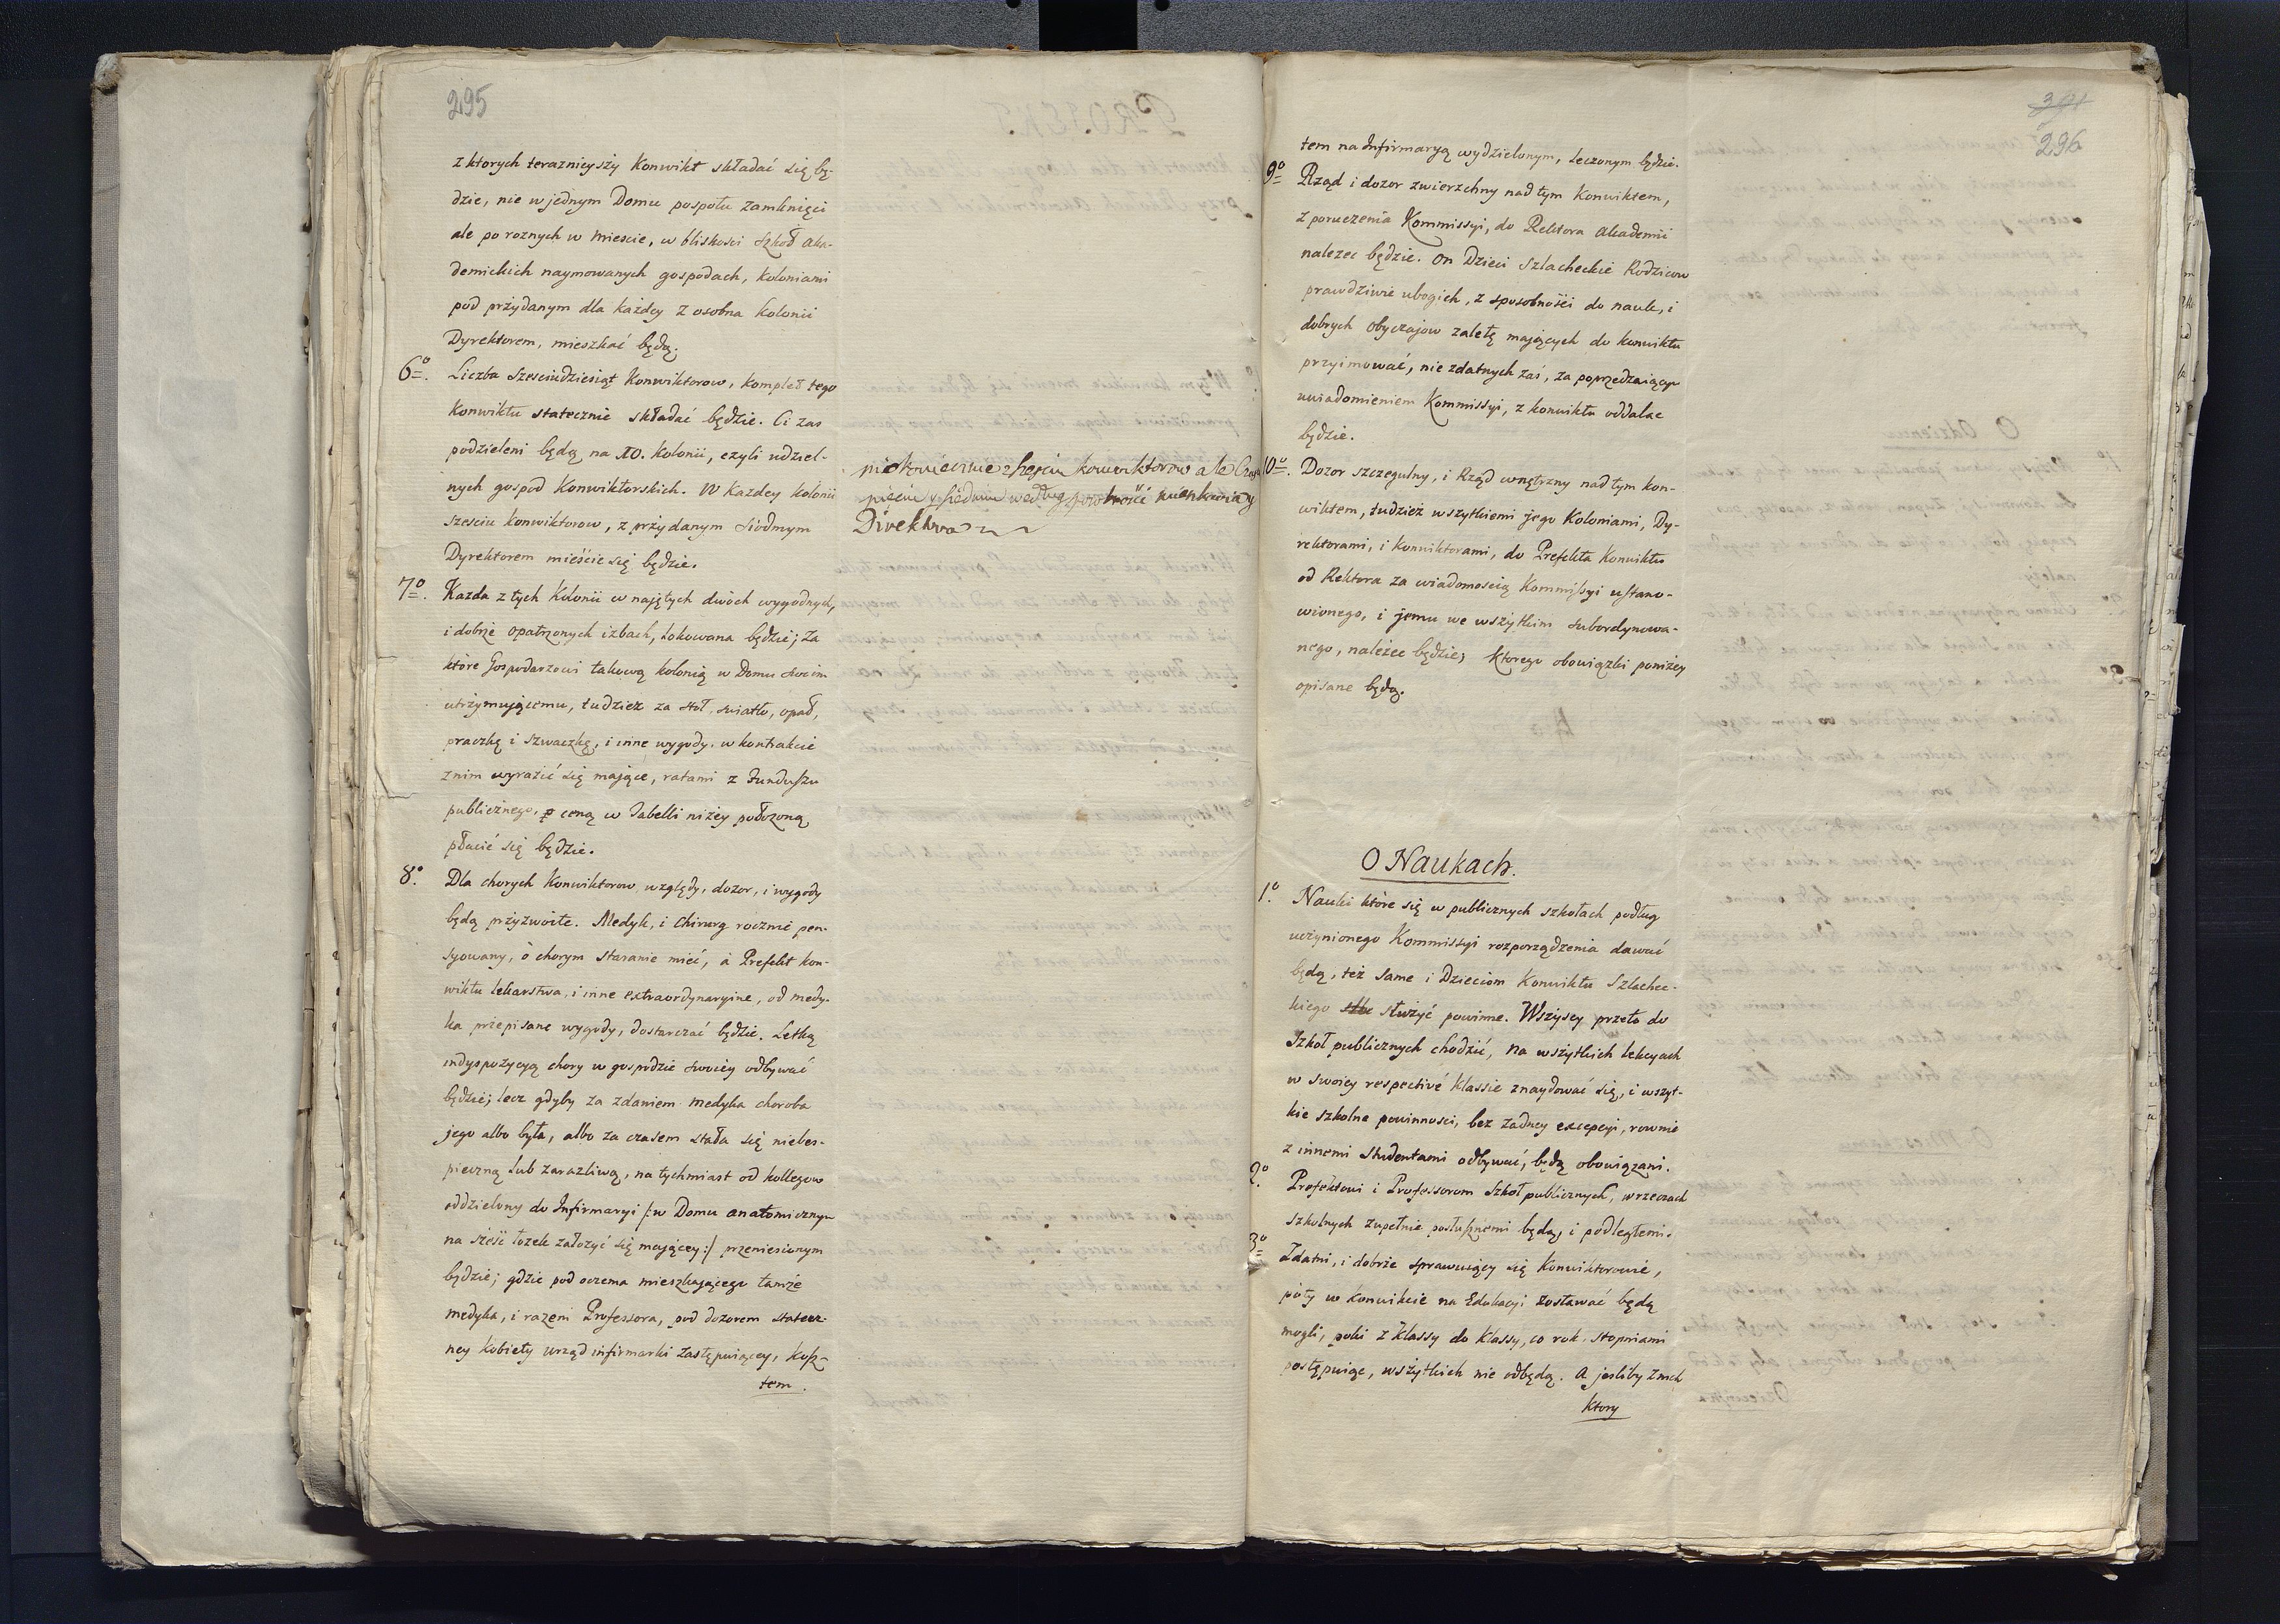 295
z ktorych teraznieyszy Konwikt składać się bę-
dzie, nie w jednym Domu pospołu zamknięci
ale po roznych w Miescie, w bliskości Szkoł Aka-
demickich naymowanych gospodach, koloniami
pod przydanym dla każdey z osobna kolonii
Dyrektorem, mieszkać będą.
6º. Liczba Szesciudziesiąt Konwiktorow, komplet tego
Konwiktu statecznie składać będzie. Ci zas
podzieleni będą na 10. Kolonii, czyli udziel-
nych gospod Konwiktorskich. W Kazdey kolonii
szesciu konwiktorow, z przydanym siodmym
Dyrektorem mieścic się będzie.
niekoniecznie szesciu konwiktorow ale
pięciu y siedmiu według mieszkania y
Direktora
7º. Kazda z tych Kolonii w najętych dwòch wygodnych,
i dobrze opatrzonych izbach, lokowana będzie; za
ktòre Gospodarzowi takową kolonią w Domu swoim
utrzymującemu, tudziez za stoł, swiatło, opał,
praczkę i szwaczkę, i inne wygody, w kontrakcie
z nim wyrazić się mające, ratami z Funduszu
publicznego, ceną w Tabelli niżey położoną
płacić się będzie.
8º. Dla chorych Konwiktorow względy, dozor, i wygody
będą przyzwoite. Medyk, i Chirurg rocznie pen-
syowany, ò chorym staranie mieć, à Prefekt kon-
wiktu lekarstwa, i inne extraordynaryine, od medy-
ka przepisane wygody, dostarczać będzie. Letką
indyspozycyą chory w gospodzie swoiey odbywać
będzie; lecz gdyby za zdaniem medyka choroba
jego albo była, albo za czasem stała się niebes-
pieczną lub zarazliwą, natychmiast od kollegow
oddzielony do Infirmaryi /:w Domu anatomicznym
na sześć łozek założyć się mającey:/ przeniesionym
będzie; gdzie pod oczema mieszkającego tamże
medyka, i razem Professora, pod dozorem statecz-
ney kobiety urząd infirmarki zastępuiącey, kosz-
tem.
301
296
tem na Infirmaryą wydzielonym, leczonym będzie.
9º Rząd i dozor zwierzchny nad tym Konwiktem,
z poruczenia Kommissyi, do Rektora Akademii
nalezec będzie. On Dzieci Szlacheckie Rodzicow
prawdziwie ubogich, z sposobnośći do nauk, i
dobrych obyczajow zaletę mających do konwiktu
przyimować, nie zdatnych zaś, za poprzedzaiącym
uwiadomieniem Kommissyi, z konwiktu oddalac
będzie.
10º. Dozor szczegulny, i Rząd wnętrzny nad tym kon-
wiktem, tudzież wszytkiemi jego Koloniami, Dy-
rektorami, i Konwiktorami, do Prefekta Konwiktu
od Rektora za wiadomoscią Kommissyi ustano-
wionego, i jemu we wszytkim subordynowa-
nego, należec będzie; ktorego obowiązki poniżey
opisane będą.
O Naukach.
1º. Nauki które się w publicznych szkołach podług
uczynionego Kommissyi rozporządzenia dawać
będą, też same i Dzieciom Konwiktu Szlachec-
kiego służyć powinne. Wszyscy przeto do
Szkoł publicznych chodzić, na wszytkich lekcyach
w swoiey respectivè klassie znaydować się, i wszyt-
kie szkolne powinnosci, bez zadney excepcyi, rownie
z innemi Studentami odbywać, będą obowiązani.
2º. Prefektowi i Professorom Szkoł publicznych, w rzeczach
szkolnych zupełnie posłusznemi będą, i podległemi.
3º Zdatni, i dobrze sprawuiący się Konwiktorowie,
pòty w konwikcie na Edukacyi zostawać będą
mogli, poki z klassy do klassy, co rok, stopniami
postępuiąc, wszytkich nie odbędą. A jesliby z nich
ktory